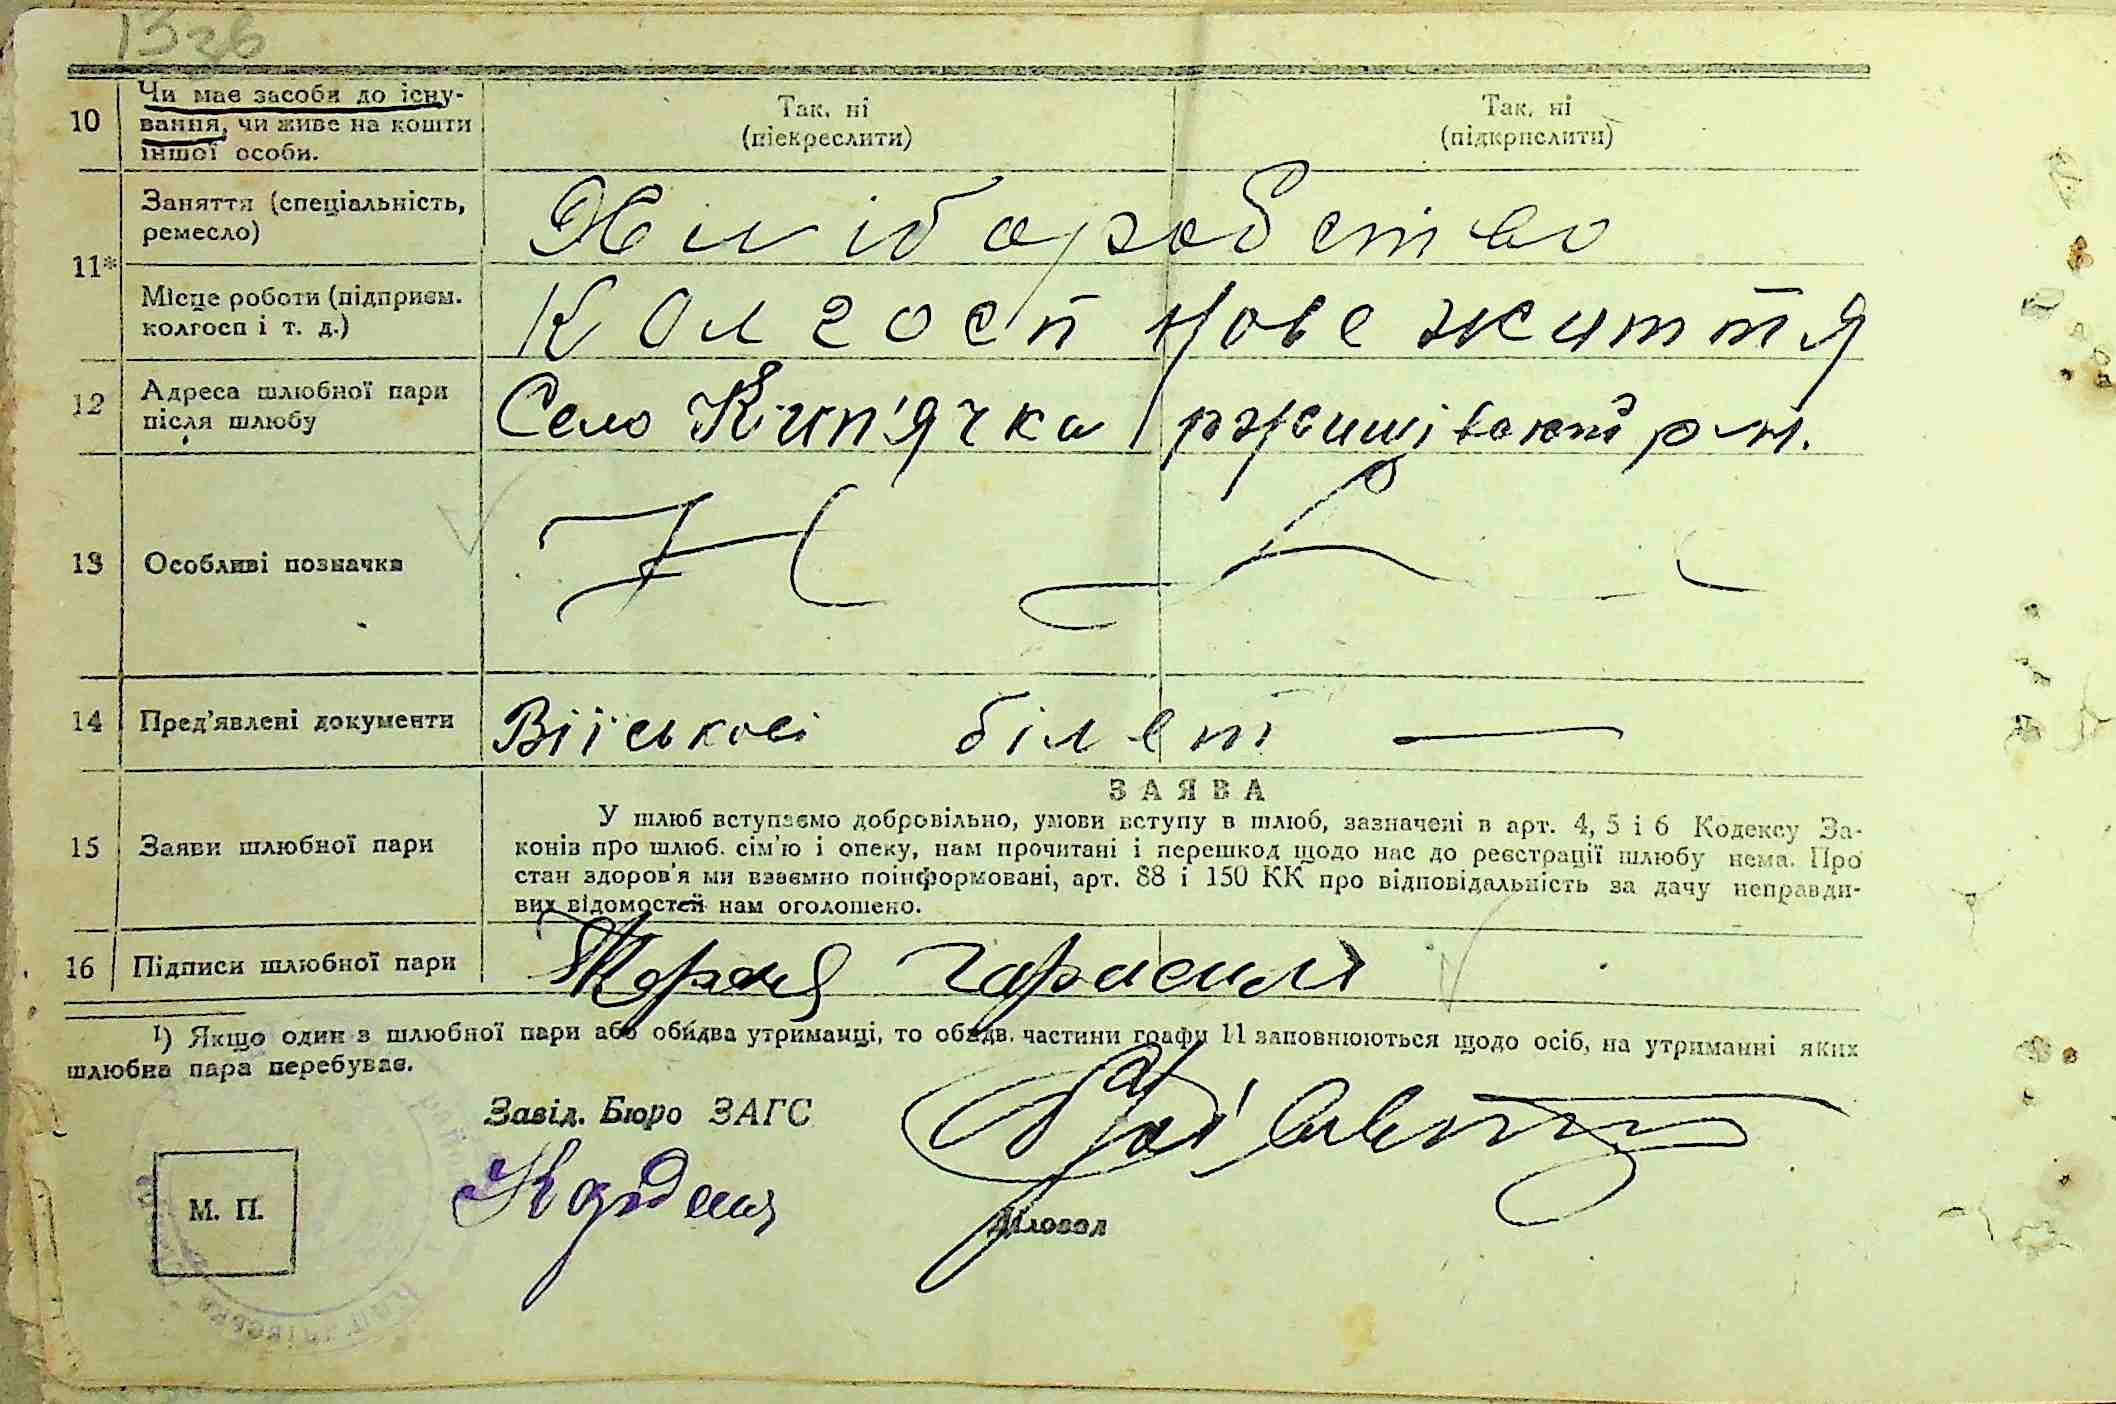 1326
10 Чи має засоби до існу-
вання, чи живе на кошти
іншої особи.
Так, ні
(піекреслити)
Так, ні
(підкрислити)
11* Заняття (спеціальність,
ремесло)
Хліборобство
Місце роботи (підприєм.
колгосп і т. д.)
Колгосп нове життя
12 Адреса шлюбної пари
після шлюбу
Село Кип'ячка ржищівский р-н.
13 Особливі позначки
14 Пред'явлені документи
Війській білет —
15 Заяви шлюбної пари
ЗАЯВА
У шлюб вступаємо добровільно, умови вступу в шлюб, зазначені в арт. 4, 5 і 6 Кодексу За-
конів про шлюб. сім'ю і опеку, нам прочитані і перешкод щодо нас до реєстрації шлюбу нема. Про
стан здоров'я ми взаємно поінформовані, арт. 88 і 150 КК про відповідальність за дачу неправди-
вих відомостей нам оголошено.
16 Підписи шлюбної пари
¹) Якщо один з шлюбної пари або обидва утриманці, то обидв. частини графи 11 заповнюються щодо осіб, на утриманні яких
шлюбна пара перебуває.
Завід. Бюро ЗАГС
М. П.
Діловод